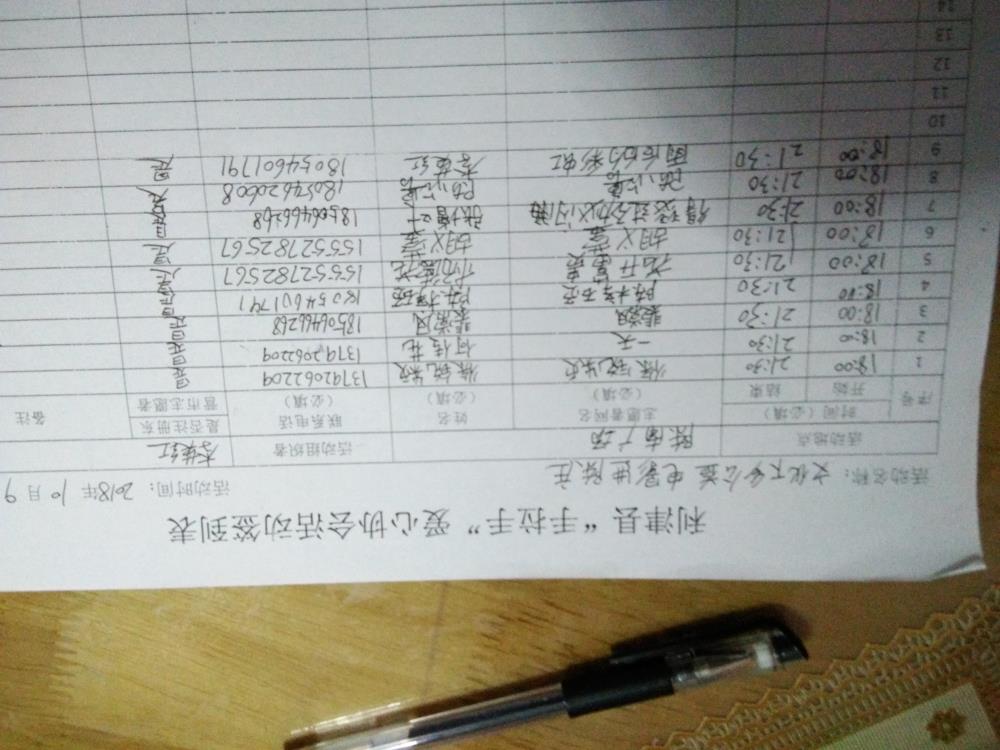 利津县“手拉手”爱心协会活动签到表
活动名称：文化下乡公益电影进陈庄 活动时间：2018年10月9
活动地点 陈南广场 活动组织者 李英红
序号 时间（必填） 志愿者网名（必填） 姓名（必填） 联系电话（必填） 是否注册东营市志愿者 备注
开始 结束
1 18:00 21:30 徐锐 13792062209 是
2 18:00 21:30 一天 何佳花 13792062209 是
3 18:00 21:30 裴淑凤 18506466268 是
4 18:00 21:30 18054601791 是
5 18:00 21:30 花开富贵 15552782567 是
6 18:00 21:30 胡义宝 胡义宝 15552782567 是
7 18:00 21:30 18506466268 是
8 18:00 21:30 陈小 陈小 18054620608 是
9 18:00 21:30 雨后的彩虹 李英红 18054601791 是
10
11
12
13
14